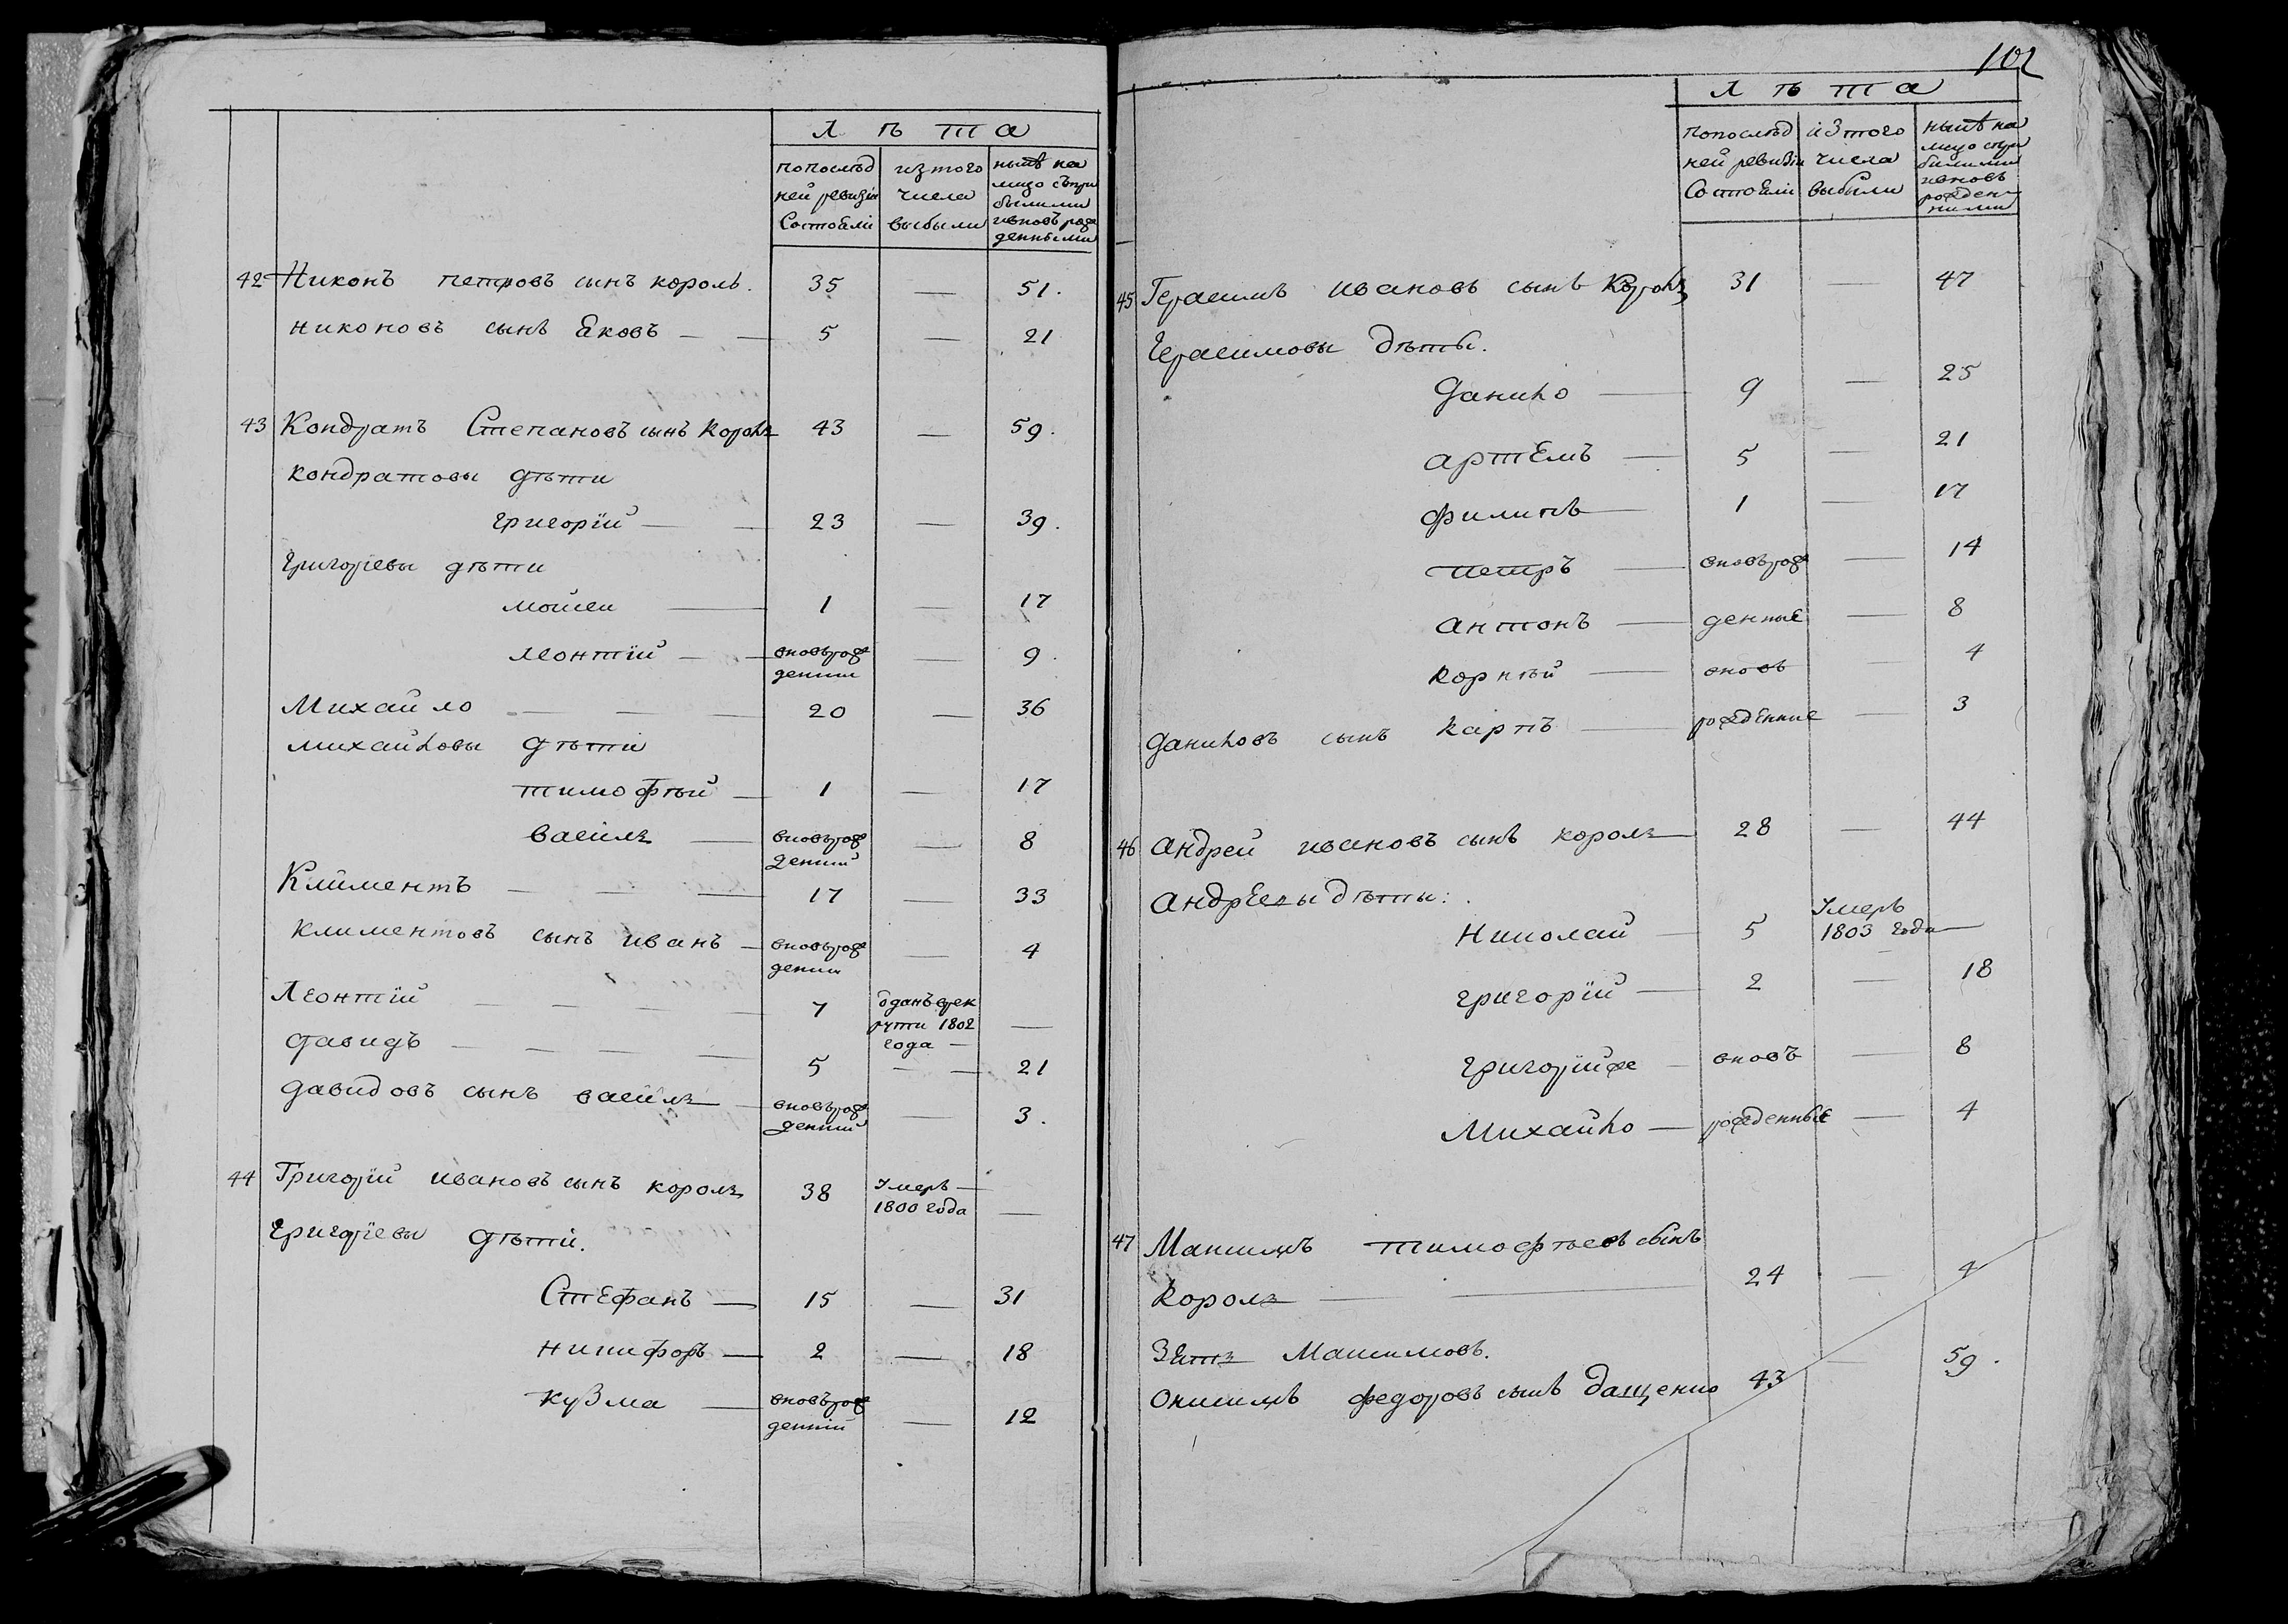 лѣта
попослѣд ней ревизіи состояли
изтого числа выбыли
нынѣ на лицо съпри былыми ивновь рож денными
42 Никонъ петровъ сынъ король. 35 — 51.
никоновъ сынъ яковъ — 5 — 21
43 Кондратъ Степановъ сынъ король 43 — 59.
кондратовы дѣти
григорій — 23 — 39.
григоріевы дѣти
мойсеи — 1 — 17
леонтій — вновьрож денни — 9.
Михайло — 20 — 36
михайловы дѣти
тимофѣй — 1 — 17
василь — вновьрож денній — 8
Климентъ — 17 — 33
климентовъ сынъ иванъ — вновьрож денни — 4
Леонтій — 7 одань врек рути 1802 года —
давидъ — 5 — 21
давидовъ сынъ василь — вновьрож денній — 3.
44 Григорій ивановъ сынъ король 38 Умерь 1800 года —
григоріевы дѣти.
Стефанъ — 15 — 31
никифоръ — 2 — 18
кузма — вновьрож денній — 12
102
лѣта
попослѣд ней ревизіи состояли
изтого числа выбыли
нынѣ на лицо спри былими ивновь рожден ними
45 Герасимъ ивановъ сынъ Король 31 — 47
Герасимовы дѣты.
данило — 9 — 25
артемъ — 5 — 21
филипъ — 1 — 17
петръ — вновьрож — 14
антонъ — денные — 8
корнѣй — вновь — 4
даниловъ сынъ карпъ — рожденние — 3
46 андрей ивановъ сынъ король 28 — 44
андреевы дѣты:
николай — 5 Умерь 1803 года —
григорій — 2 — 18
григорійже — вновь — 8
Михайло — рожденные — 4
47 Максимъ тимофѣевъ сынъ
король — 24 — 4
Зять Максимовъ.
онисимъ федоровъ сынъ дащенко 43 — 59.